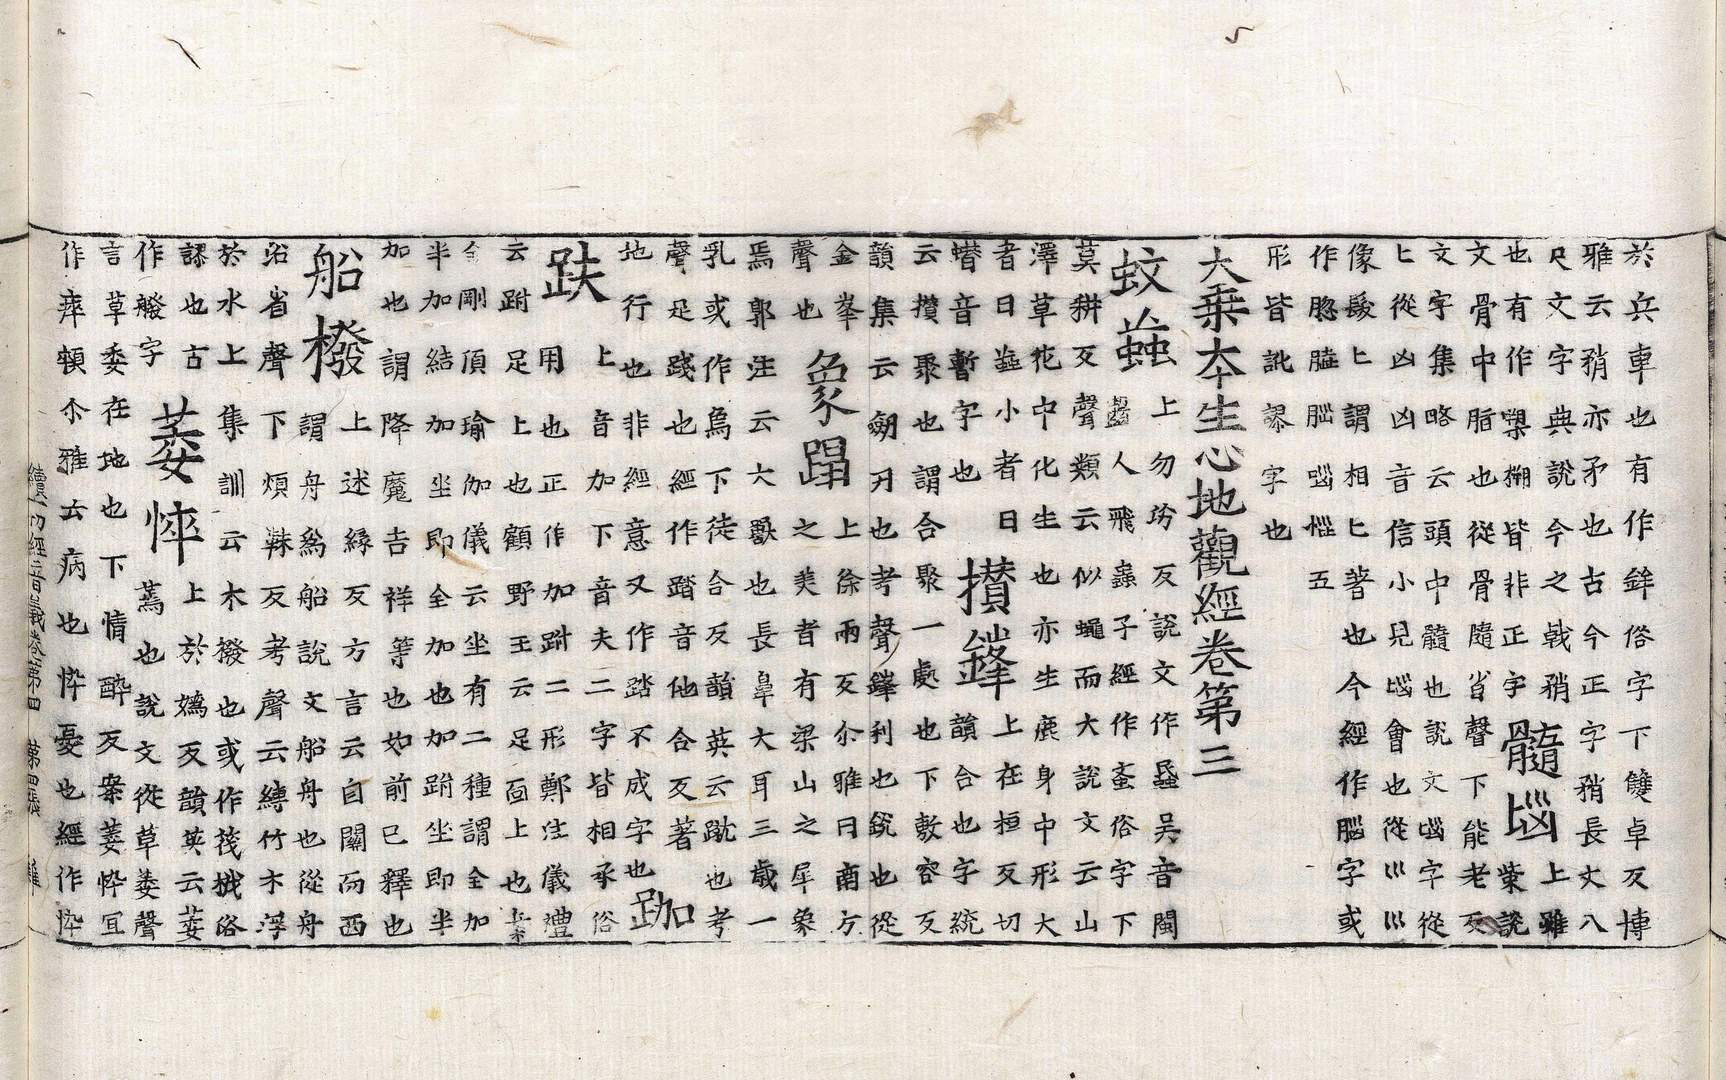 於兵車也有作鉾俗字下雙卓反博
雅云矟亦矛也古今正字矟長丈八
尺文字典說今之戟矟 髓𡿺 上雖
也有作槊槊皆非正字 紫說
文骨中脂也從骨隨省聲下能老反
文字集略云頭中髓也說文𡿺字從
匕從囟囟音信小兒𡿺會也從巛巛
像髮匕謂相匕著也今經作腦字或
作𦛁䐉腦㛴惱五
形皆訛謬字也
大乗本生心地觀經卷第三
蚊䖟 上勿汾反說文作蟁吳音閩
齧人飛蟲子經作䖟俗字下
莫耕反聲類云似蠅而大說文云山
澤草花中化生也亦生鹿身中形大
者曰䖟小者曰 攅鋒 上在桓反切
蠽音暫字也 韻合也字統
云攅聚也謂合聚一處也下敷容反
韻集云劒刃也考聲鋒利也銳也從
金夆 象蹋 上徐兩反尒雅曰南方
聲也 之美者有梁山之犀象
焉郭注云大獸也長鼻大耳三歳一
乳或作𤉢下徒合反韻英云𨀕也考
聲足踐也經作踏音他合反著
地行也非經意又作踏不成字也 跏
趺 上音加下音夫二字皆相承俗
用也正作加跗二形鄭注儀禮
云跗足上也顧野王云足面上也案
金剛頂瑜伽儀云坐有二種謂全加
半加結加坐即全加也加跗坐即半
加也謂降魔吉祥等也如前已釋也
船橃 上述緣反方言云自關而西
謂舟爲船說文船舟也從舟
㕣省聲下煩韈反考聲云縛竹木浮
於水上集訓云木撥也或作筏㭜俗
謬也古 萎悴 上於嬀反韻英云萎
作橃字 蔫也說文從草委聲
言草委在地也下情醉反案萎悴冝
作瘁顇尒雅云病也悴憂也經作忰
續一切經音義卷第四 第四張 雞